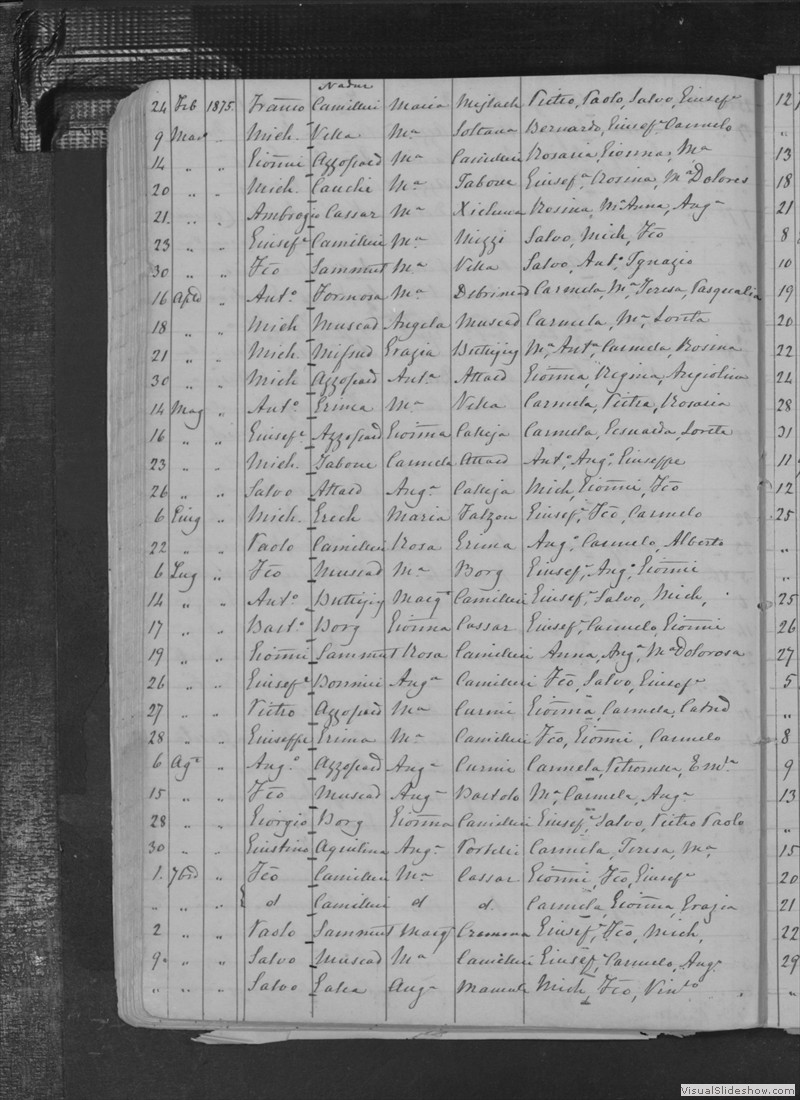 Nadur
24 Feb 1875 Franco Camilleri Maria Mejlach Pietro, Paolo, Salvo, Giusefe 12
9 Mar " Mich. Vella Ma Soltana Bernardo, Giusefe Carmelo "
14 " " Giōnni Azzopard Ma Camilleri Rosaria, Giōnna, Ma 13
20 " " Mich. Cauchi Ma Tabone Giusefa, Rosina, Ma Dolores 18
21 " " Ambrogio Cassar Ma Xicluna Rosina, Ma Anna, Anga 21
23 " " Giusefe Camilleri Ma Mizzi Salvo, Mich, Fco 8
30 " " Fco Sammut Ma Vella Salvo, Anto, Ignazio 10
16 Aple " Anto Formosa Ma Debrined Carmela, Ma Teresa, Pasqualia 19
18 " " Mich Muscad Angela Muscad Carmela, Ma, Loreta 20
21 " " Mich. Mifsud Grazia Buttigieg Ma, Anta, Carmela, Rosina 22
30 " " Mich Azzopard Anta Attard Giōnna, Regina, Angiolina 24
14 Mag " Anto Grima Ma Vella Carmela, Pietra, Rosaria 28
16 " " Giusefe Azzopard Giōnna Calleja Carmela, Loreta 31
23 " " Mich. Tabone Carmela Attard Anto, Ango, Giuseppe 11
26 " " Salvo Attard Anga Calleja Mich, Giōnni, Fco 12
6 Giug " Mich. Grech Maria Falzon Giusefe, Fco, Carmelo 25
22 " " Paolo Camilleri Rosa Grima Ango, Carmelo, Alberto "
6 Lug " Fco Muscad Ma Borg Giusefe, Ango, Giōnni "
14 " " Anto Buttigieg Marga Camilleri Giusefe, Salvo, Mich, 25
17 " " Barto Borg Giōnna Cassar Giusefe, Carmelo, Giōnni 26
19 " " Giōnni Sammut Rosa Camilleri Anna, Anga, Ma Dolorosa 27
26 " " Giusefe Bonnici Anga Camilleri Fco, Salvo, Giusefe 5
27 " " Pietro Azzopard Ma Curmi Giōnna, Carmela, Catnd "
28 " " Giuseppe Grima Ma Camilleri Fco, Giōnni, Carmelo 8
6 Ago " Ango Azzopard Anga Curmi Carmela, Petronilla, Emla 9
15 " " Fco Muscad Anga Bartolo Ma, Carmela, Anga 13
28 " " Giorgio Borg Giōnna Camilleri Giusefe, Salvo, Pietro Paolo "
30 " " Giustino Aquilina Anga Portelli Carmela, Teresa, Ma 15
1 7bre " Fco Camilleri Ma Cassar Giōnni, Fco, Giusefe 20
" " " d Camilleri d d. Carmela, Giōnna, Grazia 21
2 " " Paolo Sammut Marga Cremona Giusefe, Fco, Mich, 22
9 " " Salvo Muscad Ma Camilleri Giusefe, Carmelo, Ango 29
" " " Salvo Galea Anga Mich, Fco, Vinco "
VisualSlideshow.com